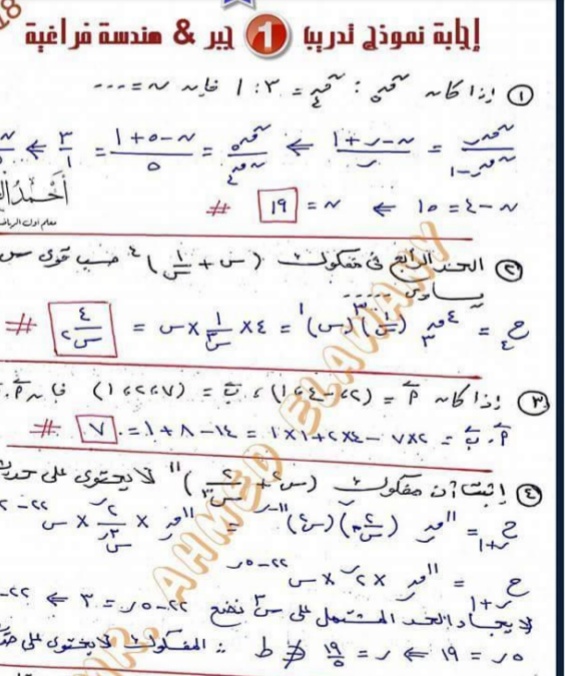 18
إجابة نموذج تدريبي 1 جبر & هندسة فراغية
① إذا كان ن ق ٥ : ن ق ٤ = ٣ : ١ فإن ن = ....
ن ق ر / ن ق ر-١ = ن - ر + ١ / ر ⇐ ن ق ٥ / ن ق ٤ = ن - ٥ + ١ / ٥ = ٣ / ١ ⇐
ن - ٤ = ١٥ ⇐ ن = ١٩ #
② الحد الرابع في مفكوك (س + ١/س)٤ حسب قوى س
يساوى .....
ح٤ = ٤ق٣ (١/س)٣ (س)١ = ٤ × ١/س٣ × س = ٤/س٢ #
③ إذا كان أ = (٢، -٤، ١)، ب = (٧، ٢، ١) فإن أ .
أ . ب = ٢×٧ - ٤×٢ + ١×١ = ١٤ - ٨ + ١ = ٧ #
④ إثبت أن مفكوك (س٢ + ٢/س٣)١١ لا يحتوى على حد
ح ر+١ = ١١ق ر (٢/س٣)ر (س٢)١١-ر = ١١ق ر × ٢ر/س٣ر × س٢٢-
ح ر+١ = ١١ق ر × ٢ر × س٢٢-٥ر
لإيجاد الحد المشتمل على س٣ نضع ٢٢ - ٥ر = ٣ ⇐ ٢٢-
٥ر = ١٩ ⇐ ر = ١٩/٥ ∉ ط ∴ المفكوك لا يحتوى على
MR. AHMED ELAWANY